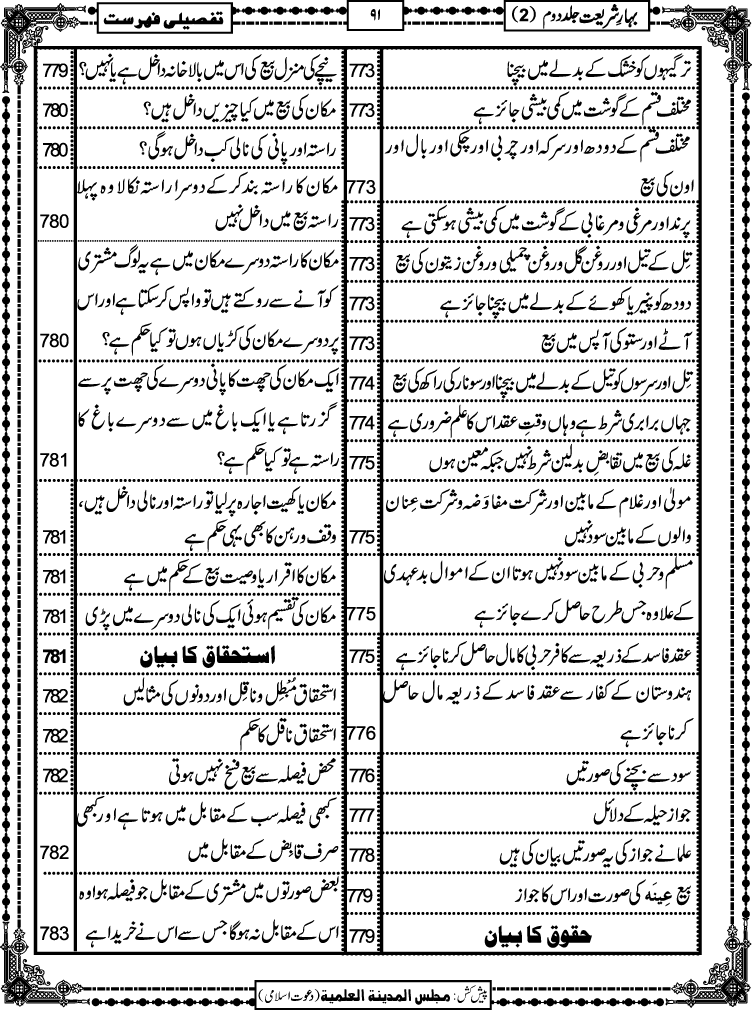 بہارِ شریعت جلد دوم (2)
۹۱
تفصیلی فہرست
تر گیہوں کو خشک کے بدلے میں بیچنا 773
مختلف قسم کے گوشت میں کمی بیشی جائز ہے 773
مختلف قسم کے دودھ اور سرکہ اور چربی اور چکی اور بال اور
اون کی بیع 773
پرند اور مرغی و مرغابی کے گوشت میں کمی بیشی ہوسکتی ہے 773
تِل کے تیل اور روغن گل و روغن چمیلی و روغن زیتون کی بیع 773
دودھ کو پنیر یا کھوئے کے بدلے میں بیچنا جائز ہے 773
آٹے اور ستو کی آپس میں بیع 773
تِل اور سرسوں کو تیل کے بدلے میں بیچنا اور سونار کی راکھ کی بیع 774
جہاں برابری شرط ہے وہاں وقتِ عقد اس کا علم ضروری ہے 774
غلہ کی بیع میں تقابض بدلین شرط نہیں جبکہ معین ہوں 775
مولیٰ اور غلام کے مابین اور شرکت مفاوَضہ و شرکت عِنان
والوں کے مابین سود نہیں 775
مسلم و حربی کے مابین سود نہیں ہوتا ان کے اموال بدعہدی
کے علاوہ جس طرح حاصل کرے جائز ہے 775
عقد فاسد کے ذریعہ سے کافر حربی کا مال حاصل کرنا جائز ہے 775
ہندوستان کے کفار سے عقد فاسد کے ذریعہ مال حاصل
کرنا جائز ہے 776
سود سے بچنے کی صورتیں 776
جواز حیلہ کے دلائل 777
علما نے جواز کی یہ صورتیں بیان کی ہیں 778
بیع عِینَہ کی صورت اور اس کا جواز 779
حقوق کا بیان 779
نیچے کی منزل بیع کی اس میں بالا خانہ داخل ہے یا نہیں؟ 779
مکان کی بیع میں کیا چیزیں داخل ہیں؟ 780
راستہ اور پانی کی نالی کب داخل ہوگی؟ 780
مکان کا راستہ بند کر کے دوسرا راستہ نکالا وہ پہلا
راستہ بیع میں داخل نہیں 780
مکان کا راستہ دوسرے مکان میں ہے یہ لوگ مشتری
کو آنے سے روکتے ہیں تو واپس کرسکتا ہے اور اس
پر دوسرے مکان کی کڑیاں ہوں تو کیا حکم ہے؟ 780
ایک مکان کی چھت کا پانی دوسرے کی چھت پر سے
گزرتا ہے یا ایک باغ میں سے دوسرے باغ کا
راستہ ہے تو کیا حکم ہے؟ 781
مکان یا کھیت اجارہ پر لیا تو راستہ اور نالی داخل ہیں،
وقف و رہن کا بھی یہی حکم ہے 781
مکان کا اقرار یا وصیت بیع کے حکم میں ہے 781
مکان کی تقسیم ہوئی ایک کی نالی دوسرے میں پڑی 781
استحقاق کا بیان 781
استحقاق مُبْطِل و ناقِل اور دونوں کی مثالیں 782
استحقاق ناقل کا حکم 782
محض فیصلہ سے بیع فسخ نہیں ہوتی 782
کبھی فیصلہ سب کے مقابل میں ہوتا ہے اور کبھی
صرف قابِض کے مقابل میں 782
بعض صورتوں میں مشتری کے مقابل جو فیصلہ ہوا وہ
اس کے مقابل نہ ہوگا جس سے اس نے خریدا ہے 783
پیش کش: مجلس المدینۃ العلمیۃ (دعوت اسلامی)